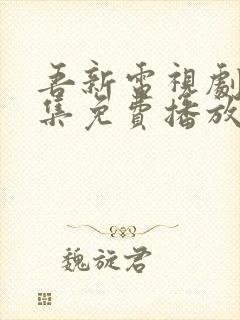 吾新雷視劇
集免費播放
魏旋君